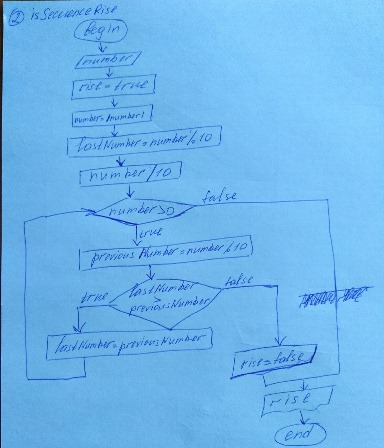 ② isSequenceRise
begin
number
rise = true
number = |number|
lastNumber = number % 10
number / 10
number > 0
false
true
previousNumber = number % 10
true
lastNumber
>
previousNumber
false
lastNumber = previousNumber
rise = false
rise
end